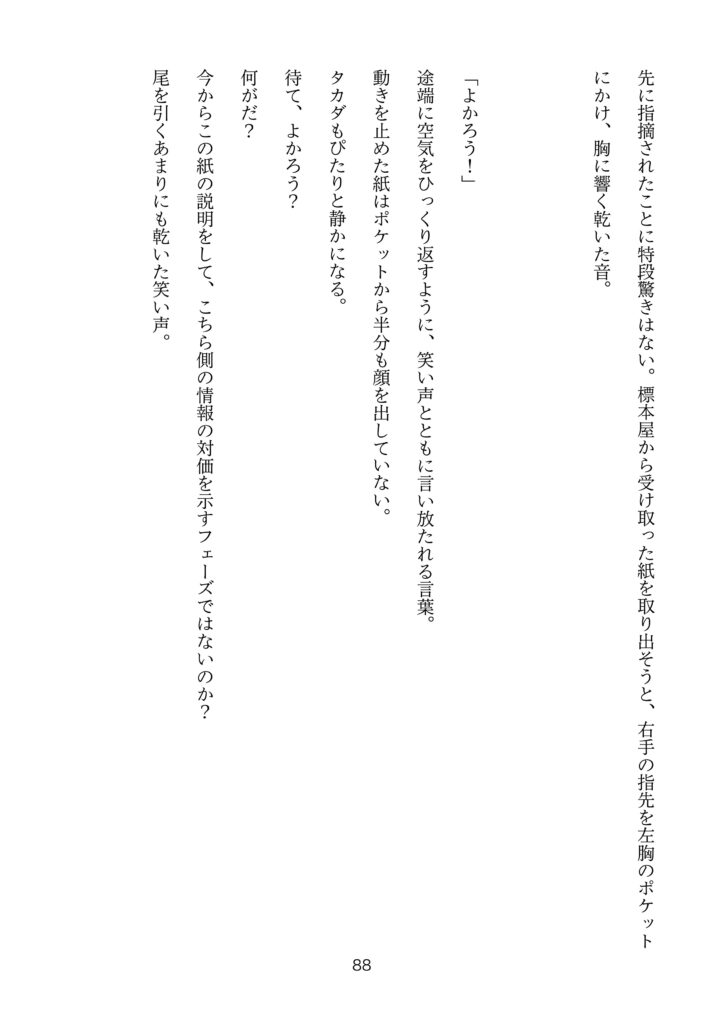 先に指摘されたことに特段驚きはない。標本屋から受け取った紙を取り出そうと、右手の指先を左胸のポケット
にかけ、胸に響く乾いた音。
「よかろう！」
途端に空気をひっくり返すように、笑い声とともに言い放たれる言葉。
動きを止めた紙はポケットから半分も顔を出していない。
タカダもぴたりと静かになる。
待て、よかろう？
何がだ？
今からこの紙の説明をして、こちら側の情報の対価を示すフェーズではないのか？
尾を引くあまりにも乾いた笑い声。
88